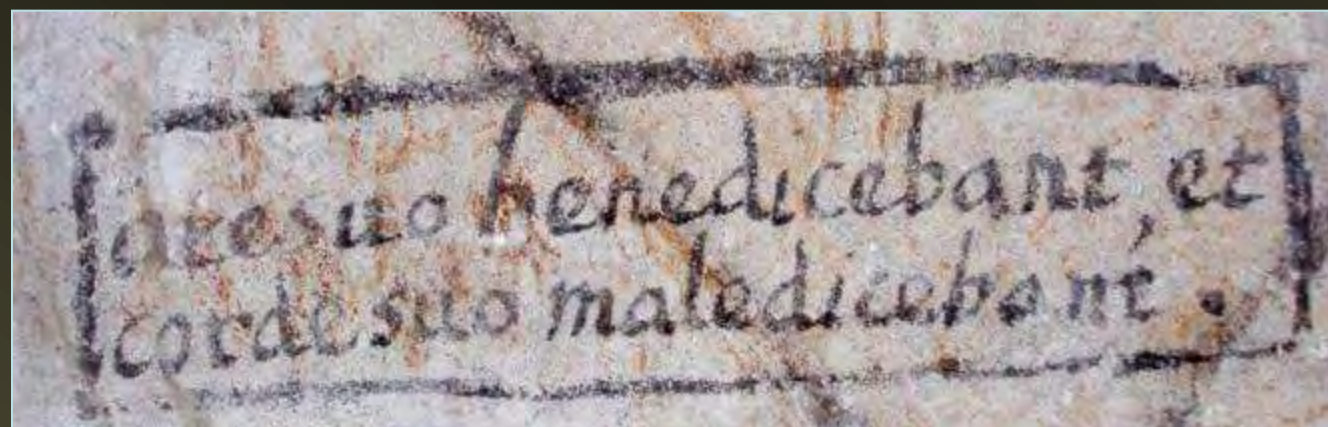 ore suo benedicebant, et
corde suo maledicebant.